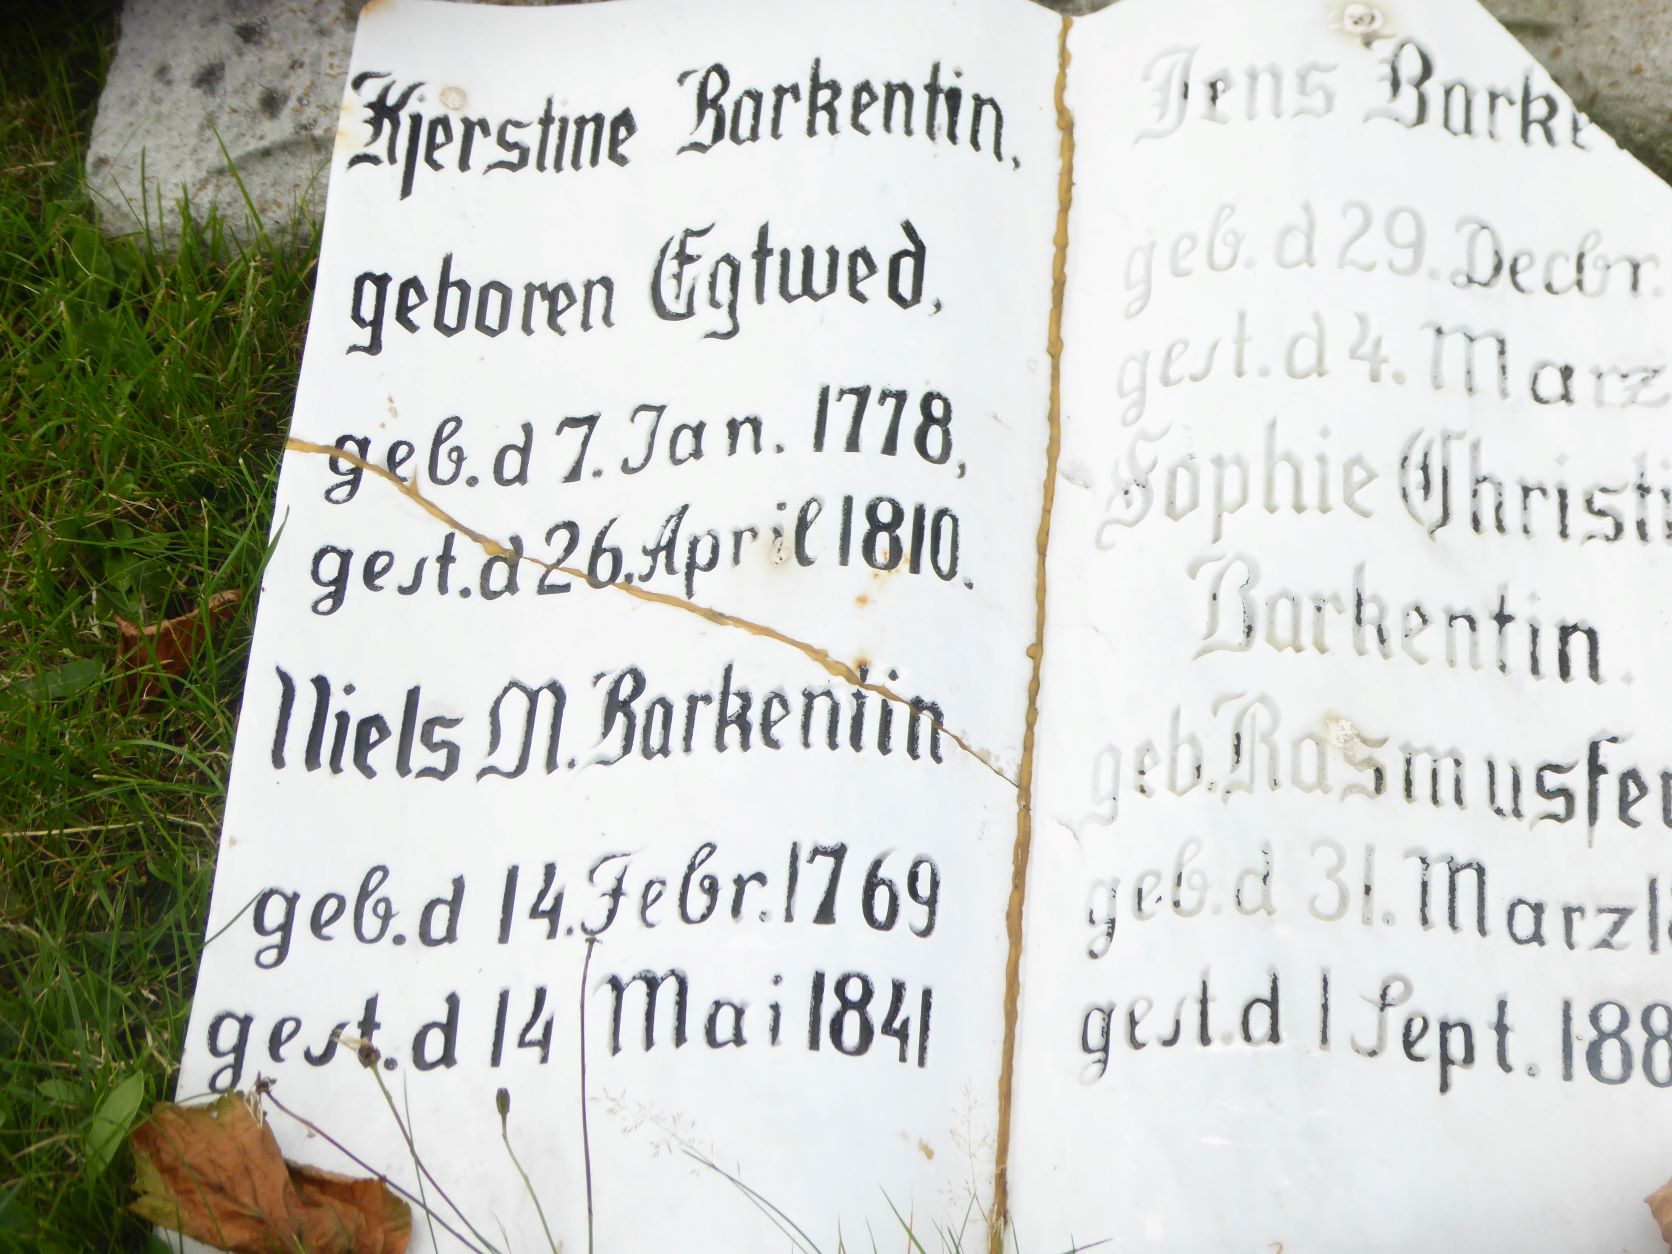 Kjerstine Barkentin,
geboren Egtwed,
geb. d 7. Jan. 1778,
gest. d 26. April 1810.
Niels M. Barkentin
geb. d 14. Febr. 1769
gest. d 14 Mai 1841
Jens Barke
geb. d 29. Decbr.
gest. d 4. Marz
Sophie Christi
Barkentin.
geb. Rasmusſen
geb. d 31. Marz 1
gest. d 1 Sept. 188